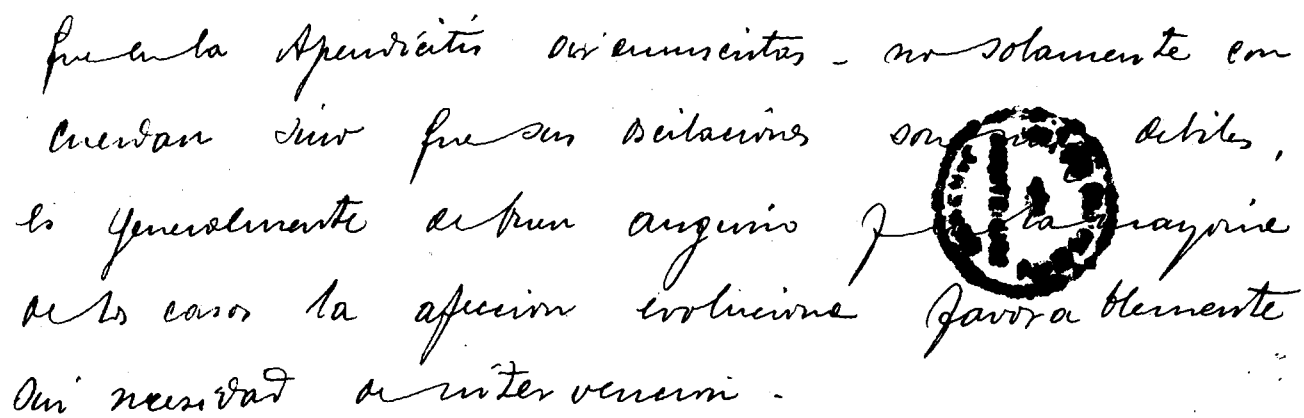 que en la Apendicitis circunscritas - no solamente con
cuerdan sino que sus oscilaciones son debiles,
es generalmente de buen augurio la mayoria
de los casos la afeccion evoluciona favorablemente
sin necesidad de intervencion -